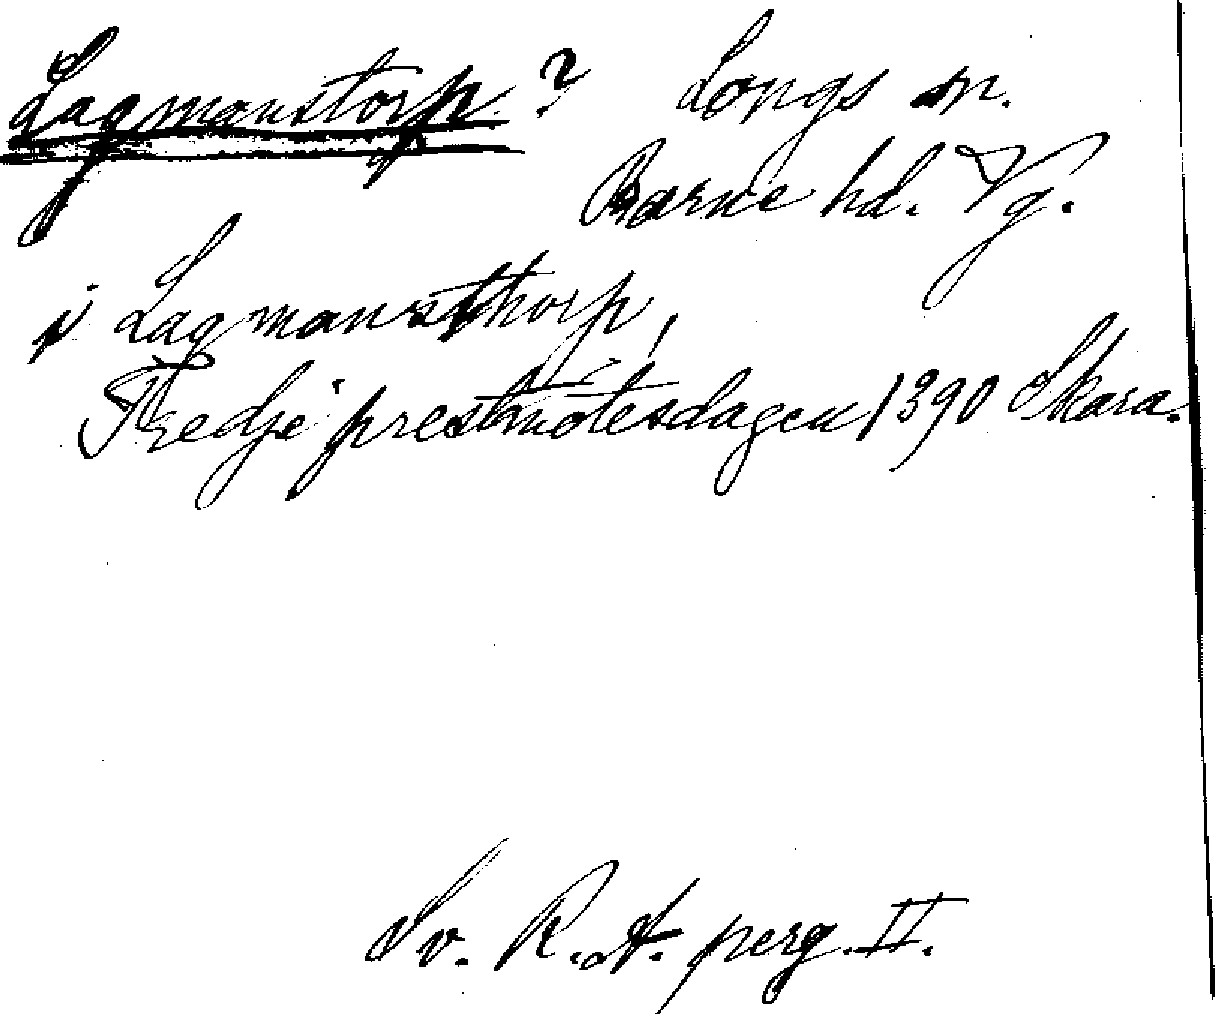 Lagmanstorp? Longs sn.
Barne hd. Vg.
j Lagmansthorp,
Tredje prestmötesdagen 1390 Skara.
Sv. R. A. perg. II.